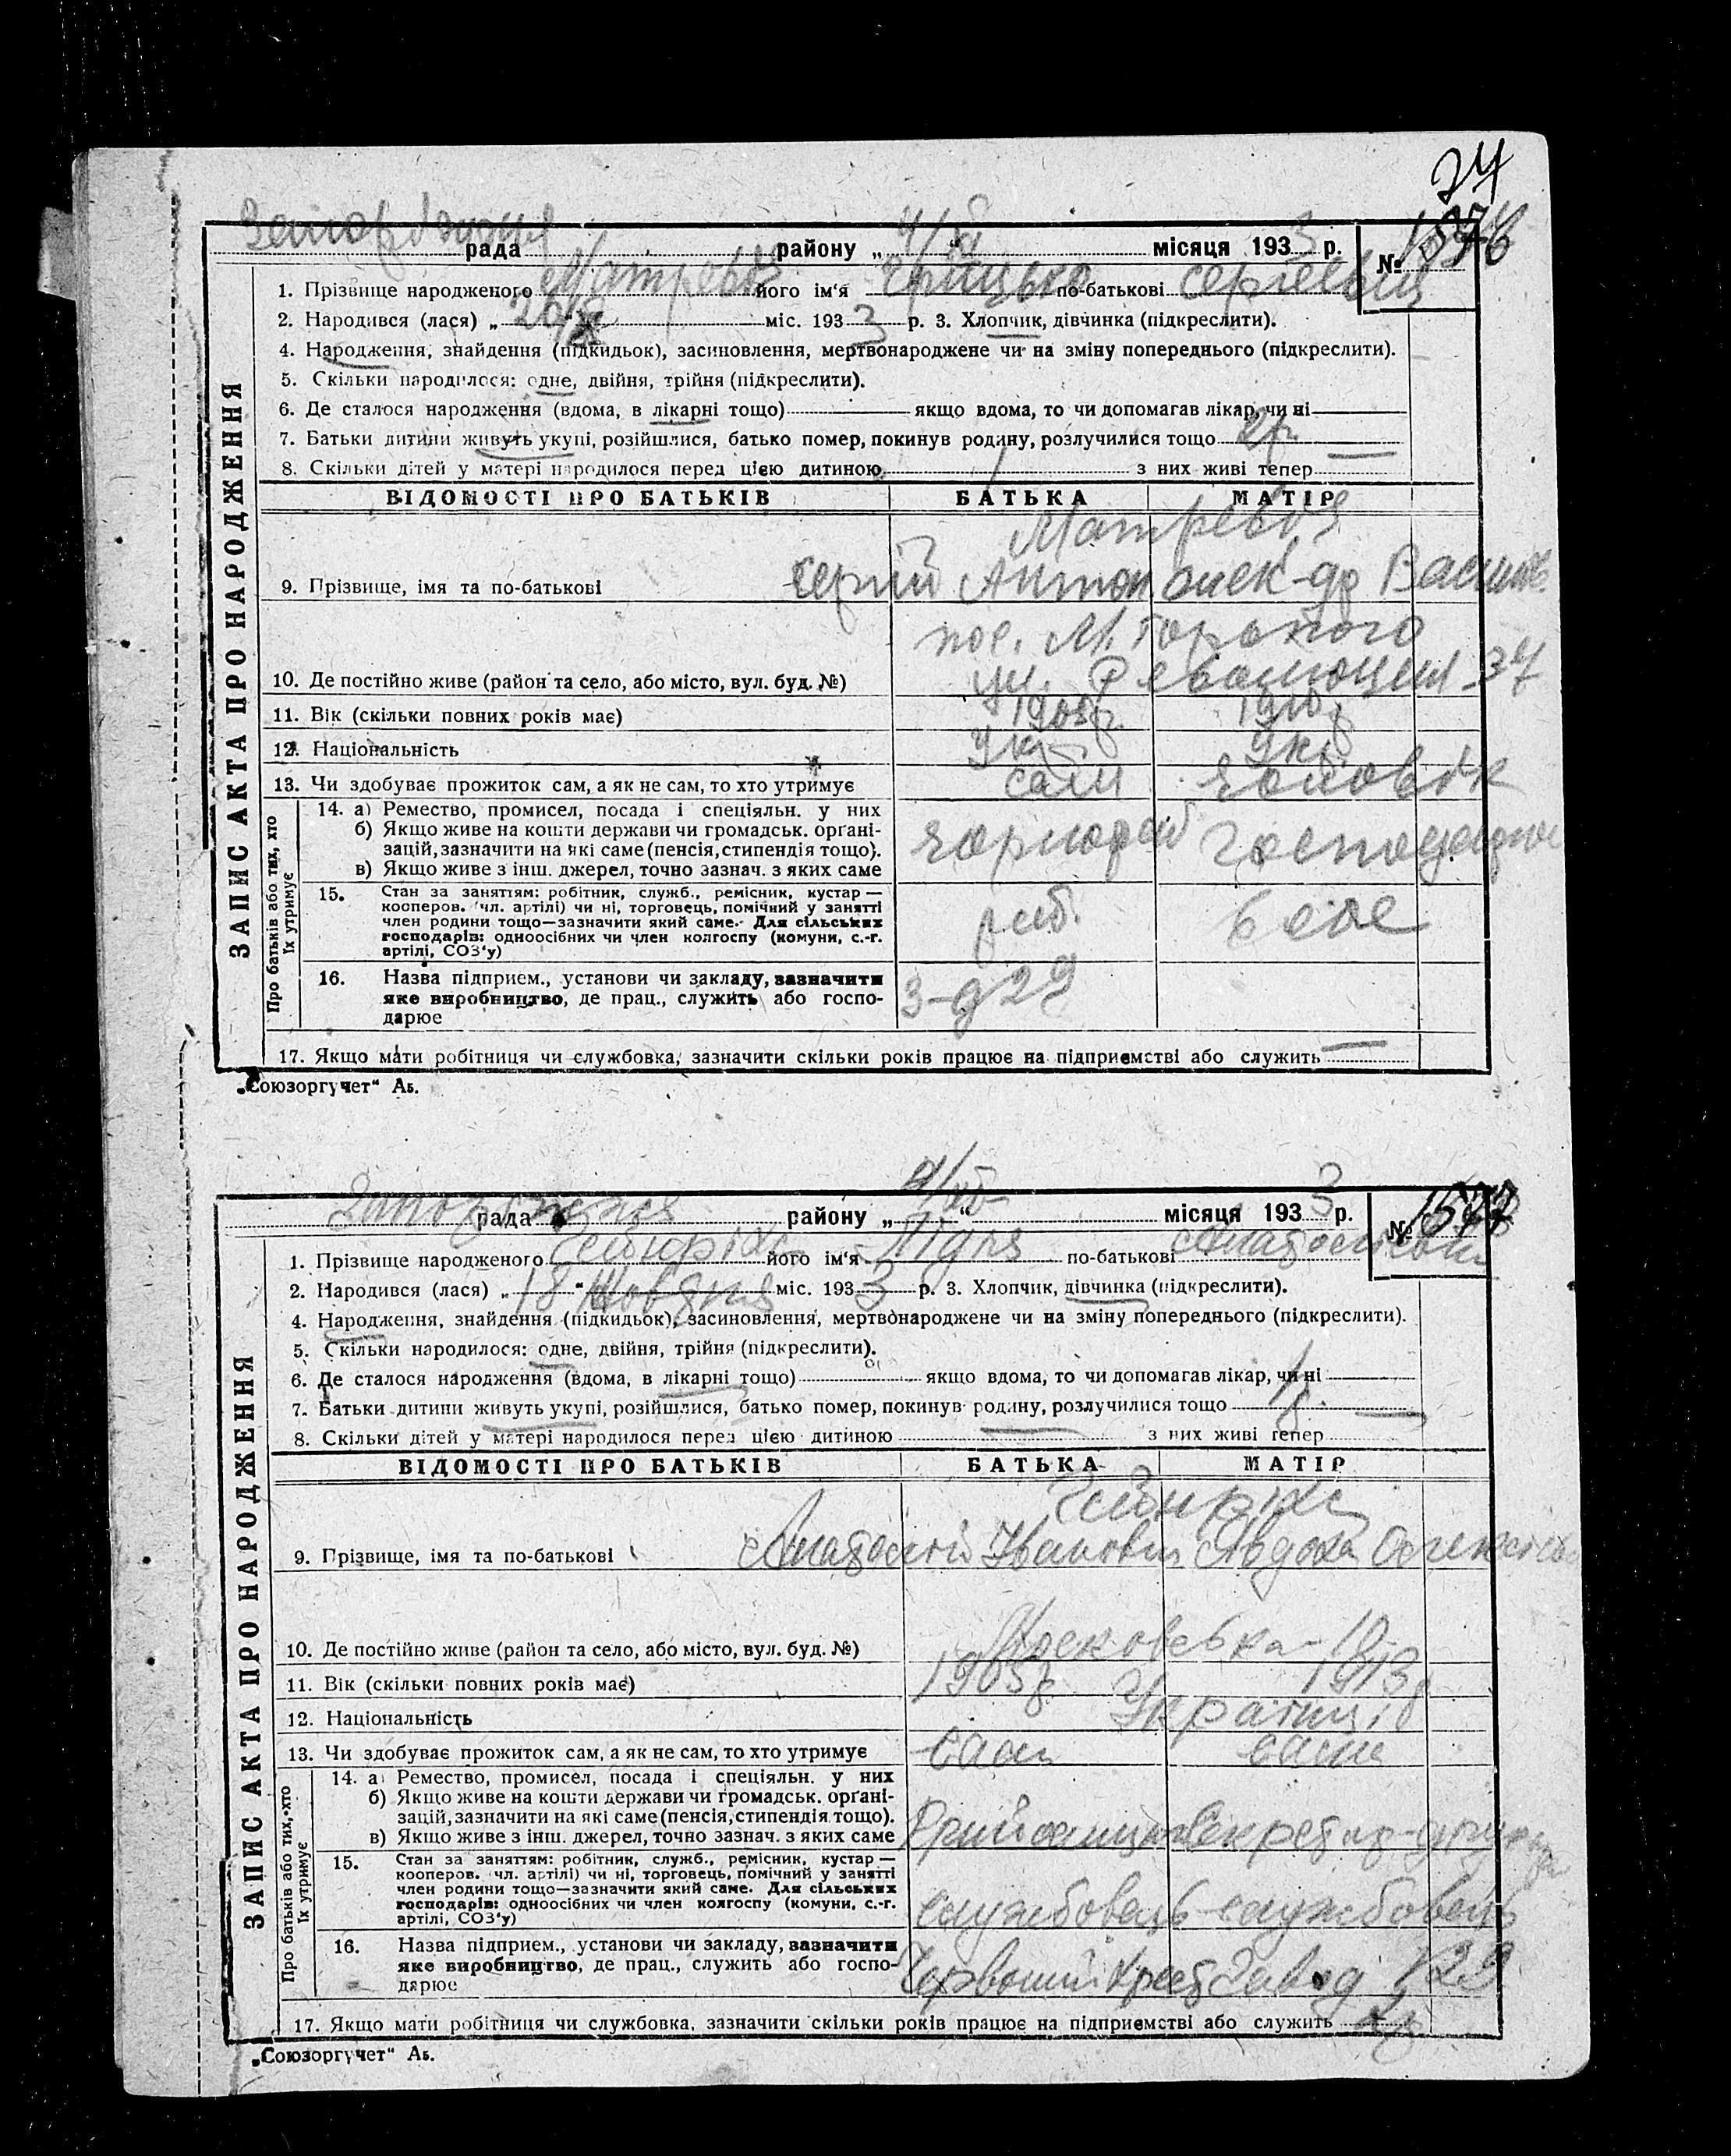 Запоріжжя
рада района „ 4/XI “ місяця 193 3 р. № 1576
1. Прізвище народженого його ім'я Грицько по-батькові Сергіевич
2. Народився (лася) „ “ міс. 193 3 р. 3. Хлопчик, дівчинка (підкреслити).
4. Народження, знайдення (підкидьок), засиновлення, мертвонароджене чи на зміну попереднього (підкреслити).
5. Скільки народилося: одне, двійня, трійня (підкреслити).
6. Де сталося народження (вдома, в лікарні тощо) якщо вдома, то чи допомагав лікар, чи ні
7. Батьки дитини живуть укупі, розійшлися, батько помер, покинув родину, розлучилися тощо 2р.
8. Скільки дітей у матері народилося перед цією дитиною 1 з них живі тепер
ВІДОМОСТІ ПРО БАТЬКІВ БАТЬКА МАТІР
9. Прізвище, імя та по-батькові Сергій Антон Василів.
пос. М. Горького
10. Де постійно живе (район та село, або місто, вул. буд. №) ул. Революции 37
11. Вік (скільки повних років має) 1908р. 1910р
12. Національність Укр Укр
13. Чи здобуває прожиток сам, а як не сам, то хто утримує сам чоловік
ЗАПИС АКТА ПРО НАРОДЖЕННЯ
Про батьків або тих, хто їх утримує
14. а) Ремество, промисел, посада і спеціяльн. у них
б) Якщо живе на кошти держави чи громадськ. орґані-
зацій, зазначити на які саме (пенсія, стипендія тощо).
в) Якщо живе з інш. джерел, точно зазнач. з яких саме
чорнороб
15. Стан за заняттям: робітник, служб., ремісник, кустар —
кооперов. чл. артілі) чи ні, торговець, помічний у занятті
член родини тощо—зазначити який саме. Для сільських
господарів: одноосібних чи член колгоспу (комуни, с.-г.
артілі, СОЗ'у)
роб.
16. Назва підприєм., установи чи закладу, зазначити
яке виробництво, де прац., служить або госпо-
дарює
З-д 29
17. Якщо мати робітниця чи службовка, зазначити скільки років працює на підприємстві або служить
„Союзоргучет“ Аб.
Запоріжжя
рада району „ 4/XI “ місяця 193 3 р. № 1577
1. Прізвище народженого його ім'я Лідія по-батькові Анатоліївна
2. Народився (лася) „ 18 “ Жовтня міс. 193 3 р. 3. Хлопчик, дівчинка (підкреслити).
4. Народження, знайдення (підкидьок), засиновлення, мертвонароджене чи на зміну попереднього (підкреслити).
5. Скільки народилося: одне, двійня, трійня (підкреслити).
6. Де сталося народження (вдома, в лікарні тощо) якщо вдома, то чи допомагав лікар, чи ні
7. Батьки дитини живуть укупі, розійшлися, батько помер, покинув родину, розлучилися тощо 1р.
8. Скільки дітей у матері народилося перед цією дитиною з них живі тепер
ВІДОМОСТІ ПРО БАТЬКІВ БАТЬКА МАТІР
9. Прізвище, імя та по-батькові Анатолій Іванович Явдоха
10. Де постійно живе (район та село, або місто, вул. буд. №) Московська - 10
11. Вік (скільки повних років має) 1905р. 1913р
12. Національність Українці
13. Чи здобуває прожиток сам, а як не сам, то хто утримує сам сама
ЗАПИС АКТА ПРО НАРОДЖЕННЯ
Про батьків або тих, хто їх утримує
14. а) Ремество, промисел, посада і спеціяльн. у них
б) Якщо живе на кошти держави чи громадськ. орґані-
зацій, зазначити на які саме (пенсія, стипендія тощо).
в) Якщо живе з інш. джерел, точно зазнач. з яких саме
15. Стан за заняттям: робітник, служб., ремісник, кустар —
кооперов. чл. артілі) чи ні, торговець, помічний у занятті
член родини тощо—зазначити який саме. Для сільських
господарів: одноосібних чи член колгоспу (комуни, с.-г.
артілі, СОЗ'у)
службовець службовець
16. Назва підприєм., установи чи закладу, зазначити
яке виробництво, де прац., служить або госпо-
дарює
Червоний Крест Завод №29
17. Якщо мати робітниця чи службовка, зазначити скільки років працює на підприємстві або служить 2р
„Союзоргучет“ Аб.